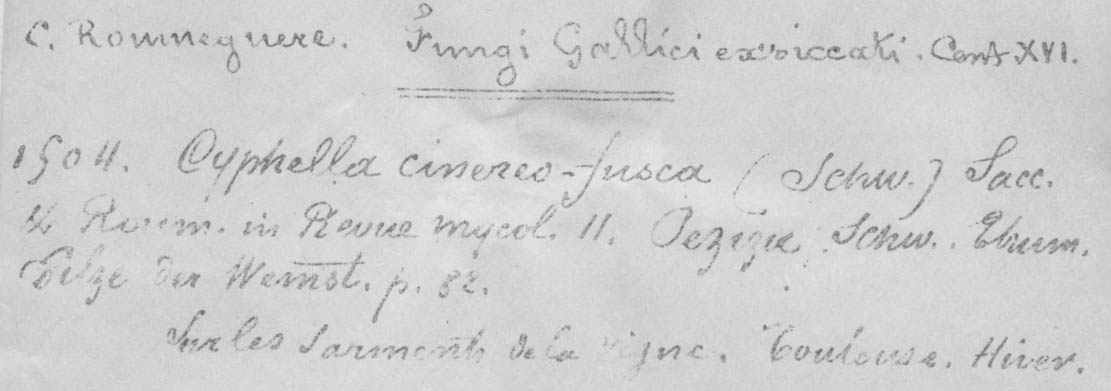 C. Roumeguere. Fungi Gallici exsiccati. Cent. XVI.
1504. Cyphella cinereo-fusca (Schw.) Sacc.
& Roum. in Revue mycol. 11. Peziza Schw. Thum.
Pilze der Weinst. p. 82.
Sur les Sarments de la Vigne. Toulouse. Hiver.